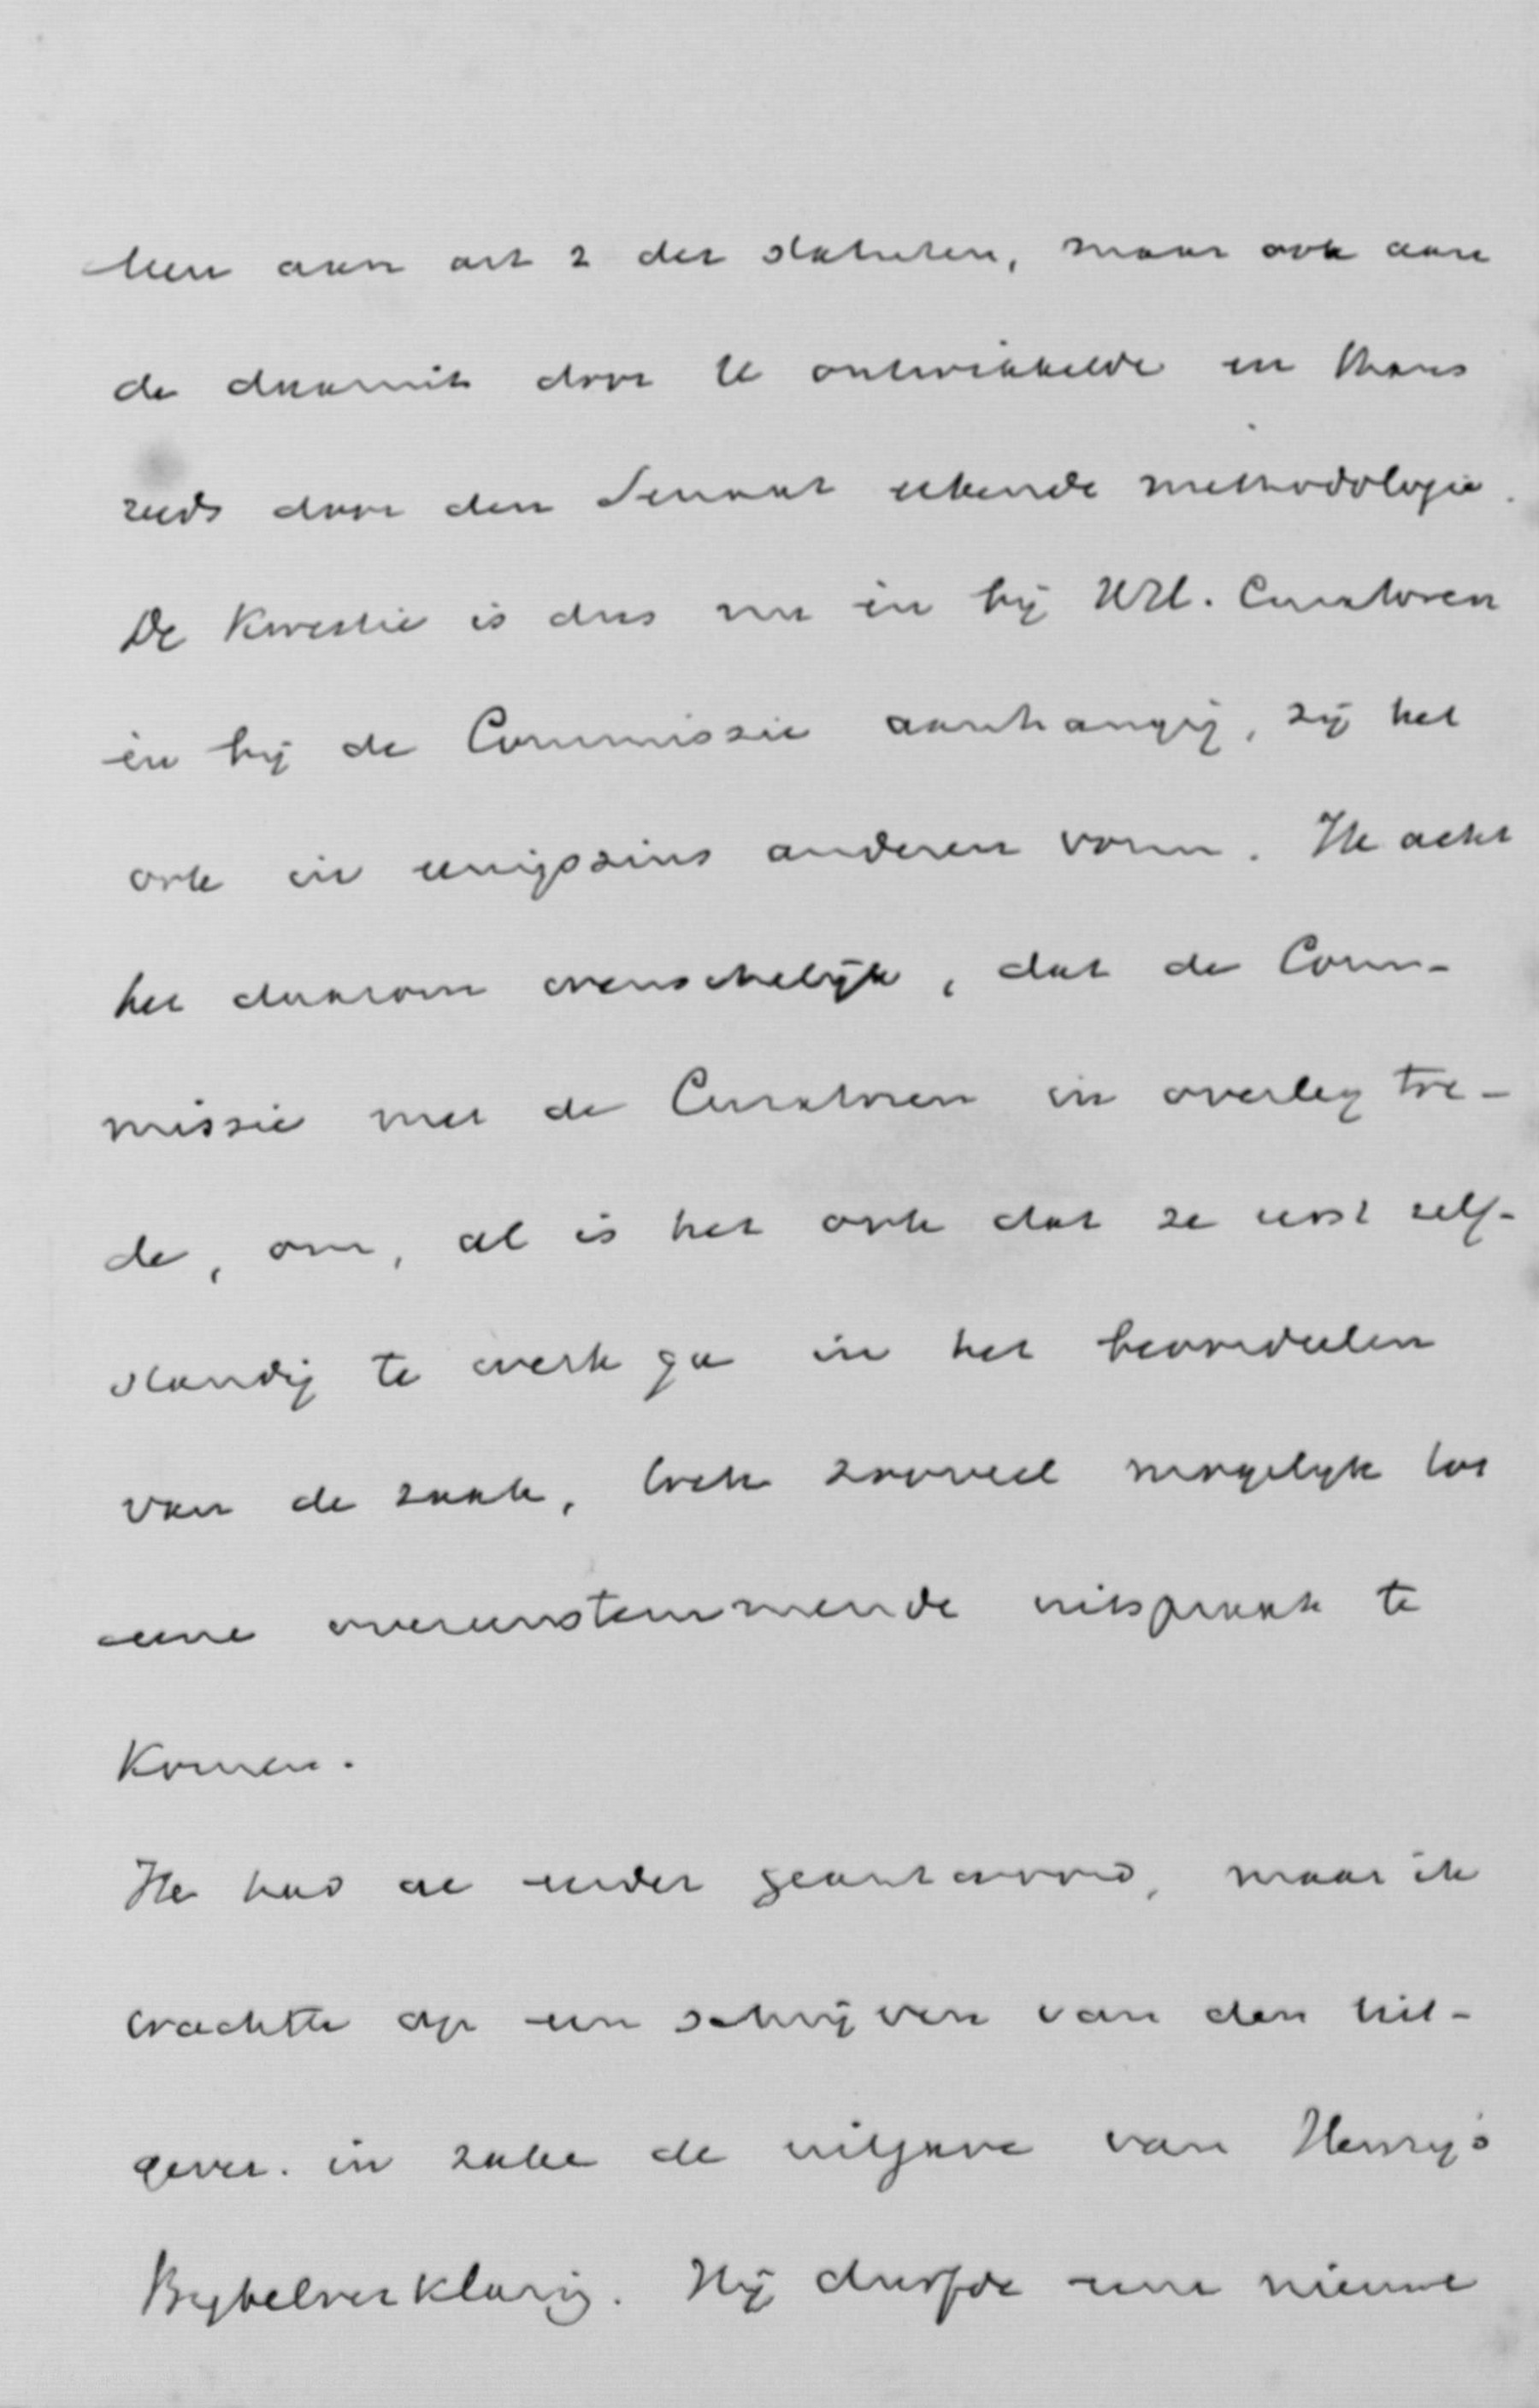 leen aan art 2 der statuten, maar ook aan
de daaruit door U ontwikkelde en thans
reeds door den Senaat erkende methodologie.
De kwestie is dus nu èn bij WEd. Curatoren
èn bij de Commissie aanhangig, zij het
ook in eenigszins anderen vorm. Ik acht
het daarom wenschelijk, dat de Com-
missie met de Curatoren in overleg tre-
de, om, al is het ook dat ze eerst zelf-
standig te werk ga in het beoordeelen
van de zaak, toch zooveel mogelijk tot
eene overeenstemmende uitspraak te
komen.
Ik had al eerder geantwoord, maar ik
wachtte op een schrijven van den uit-
gever. in zake de uitgave van Henry's
Bijbelverklaring. Hij durfde eene nieuwe